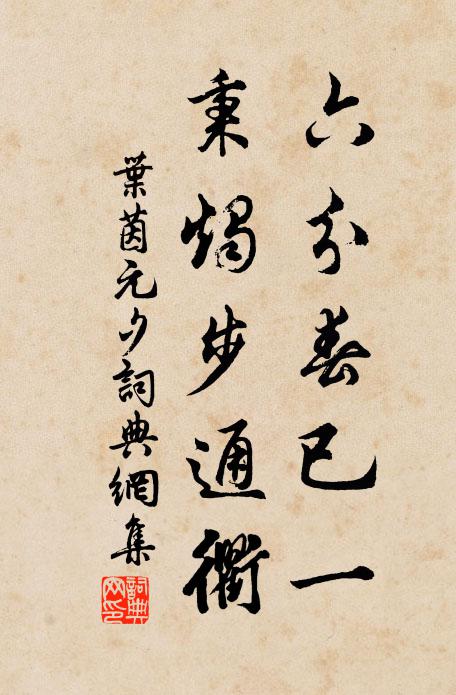 六分春已一
秉燭步通衢
葉茵元夕詞典網集
詞典網印